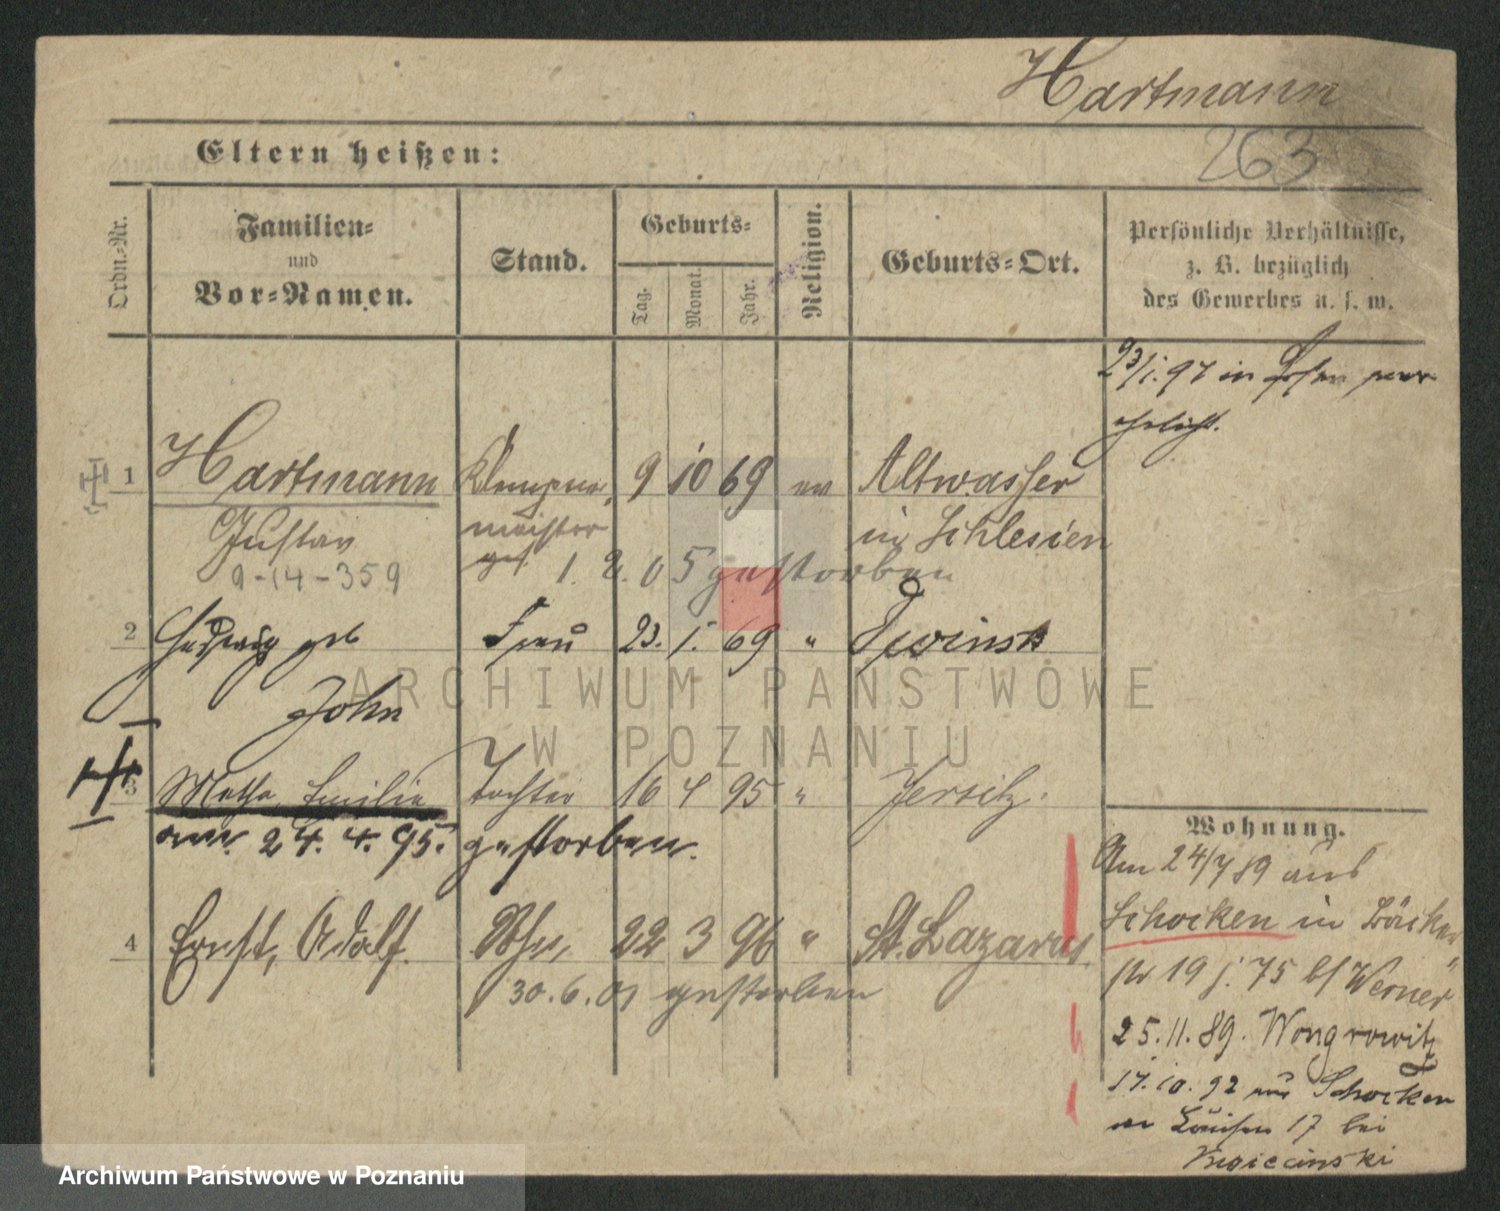 Hartmann
263
Eltern heißen:
Ordn.-Nr.
Familien-
und
Vor-Namen.
Stand.
Geburts-
Tag.
Monat.
Jahr.
Religion.
Geburts-Ort.
Persönliche Verhältnisse,
z. B. bezüglich
des Gewerbes u. s. w.
23/1. 97 in Posen ver
ehelicht.
1 Hartmann Klempner 9 10 69 ev Altwasser
Gustav meister in Schlesien
9-14-359 1. 2. 05 gestorben
2 Hedwig geb Frau 23. 1. 69 "
John
3 Metha Emilie Tochter 16 4 95 " Jersitz.
am 24. 4. 95. gestorben.
4 Ernst, Adolf. Sohn, 22 3 96 " St. Lazarus.
30. 6. 01 gestorben
Wohnung.
Am 24/7 89 aus
Schocken in
19 75 b/ Werner
25. 11. 89. Wongrowitz
17. 10. 92 aus Schocken
17 bei
ARCHIWUM PAŃSTWOWE
W POZNANIU
Archiwum Państwowe w Poznaniu